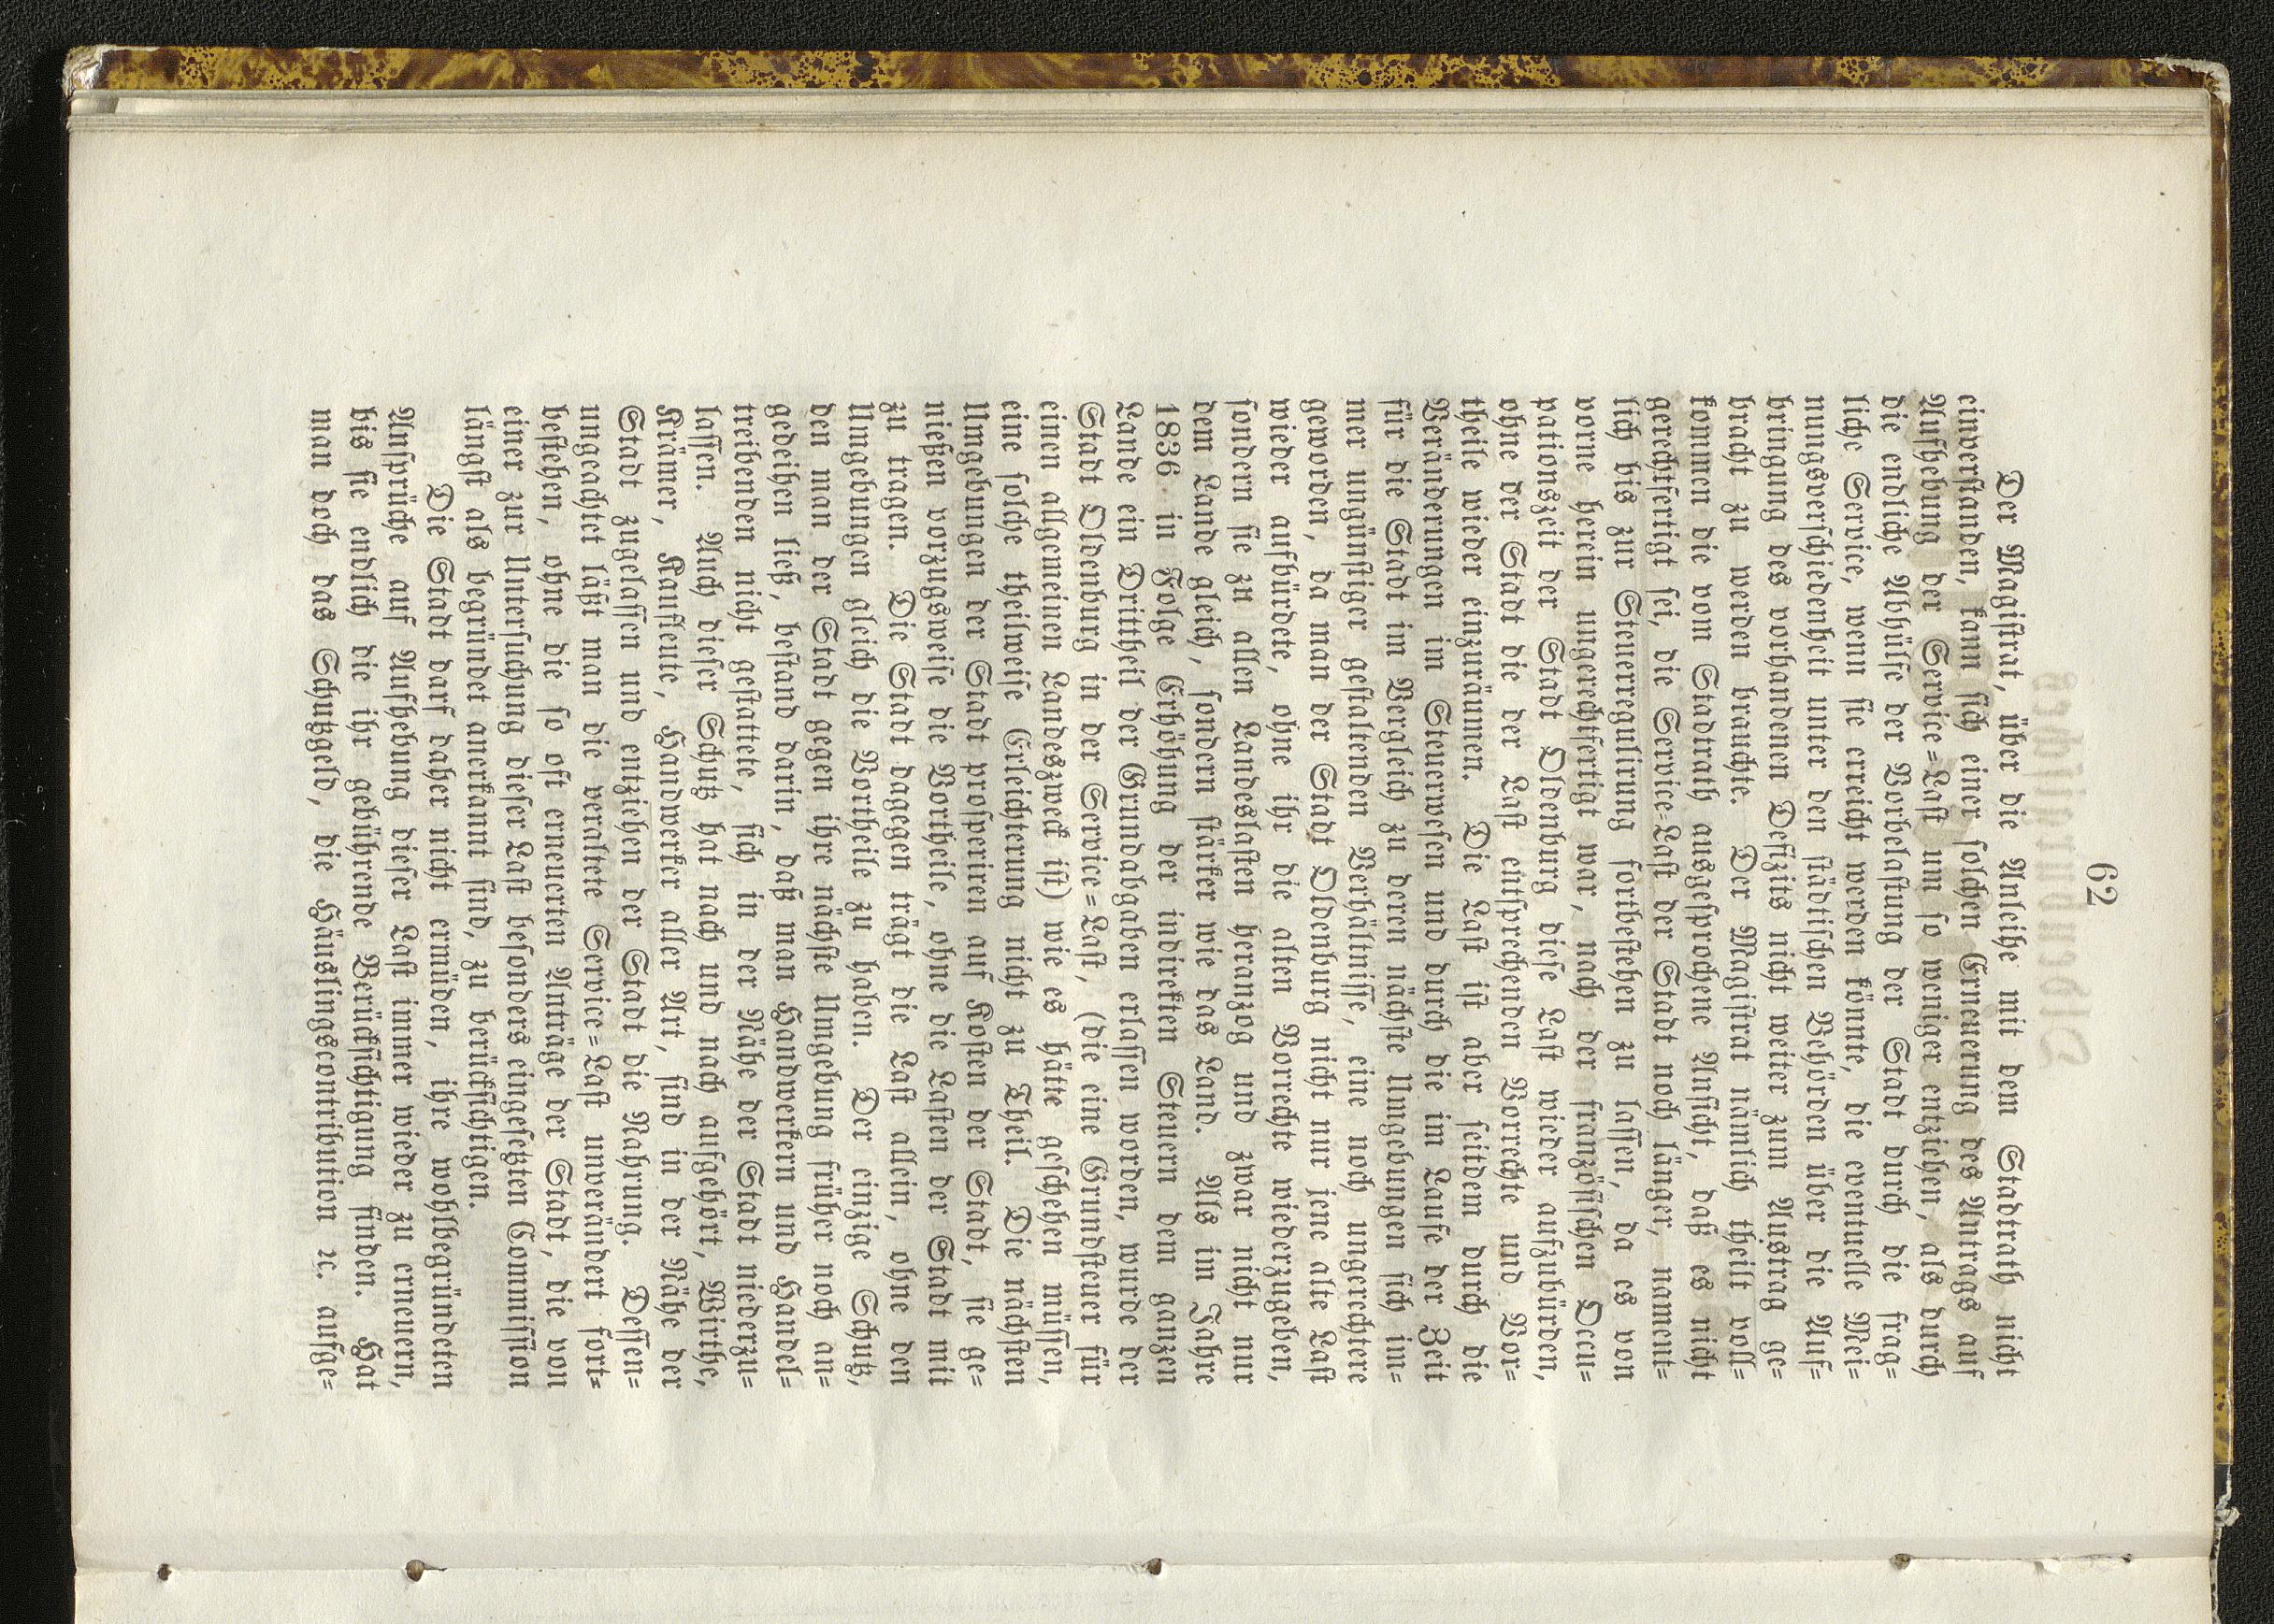 62
Der Magistrat, über die Anleihe mit dem Stadtrath nicht
einverstanden, kann sich einer solchen Erneuerung des Antrags auf
Aufhebung der Service=Last um so weniger entziehen, als durch
die endliche Abhülfe der Vorbelastung der Stadt durch die frag=
liche Service, wenn sie erreicht werden könnte, die eventuelle Mei=
nungsverschiedenheit unter den städtischen Behörden über die Auf=
bringung des vorhandenen Defizits nicht weiter zum Austrag ge=
bracht zu werden brauchte. Der Magistrat nämlich theilt voll=
kommen die vom Stadtrath ausgesprochene Ansicht, daß es nicht
gerechtfertigt sei, die Service=Last der Stadt noch länger, nament=
lich bis zur Steuerregulirung fortbestehen zu lassen, da es von
vorne herein ungerechtfertigt war, nach der französischen Occu=
pationszeit der Stadt Oldenburg diese Last wieder aufzubürden,
ohne der Stadt die der Last entsprechenden Vorrechte und Vor=
theile wieder einzuräumen. Die Last ist aber seitdem durch die
Veränderungen im Steuerwesen und durch die im Laufe der Zeit
für die Stadt im Vergleich zu deren nächste Umgebungen sich im=
mer ungünstiger gestaltenden Verhältnisse, eine noch ungerechtere
geworden, da man der Stadt Oldenburg nicht nur jene alte Last
wieder aufbürdete, ohne ihr die alten Vorrechte wiederzugeben,
sondern sie zu allen Landeslasten heranzog und zwar nicht nur
dem Lande gleich, sondern stärker wie das Land. Als im Jahre
1836 in Folge Erhöhung der indirekten Steuern dem ganzen
Lande ein Drittheil der Grundabgaben erlassen worden, wurde der
Stadt Oldenburg in der Service=Last, (die eine Grundsteuer für
einen allgemeinen Landeszweck ist) wie es hätte geschehen müssen,
eine solche theilweise Erleichterung nicht zu Theil. Die nächsten
Umgebungen der Stadt prosperiren auf Kosten der Stadt, sie ge=
nießen vorzugsweise die Vortheile, ohne die Lasten der Stadt mit
zu tragen. Die Stadt dagegen trägt die Last allein, ohne den
Umgebungen gleich die Vortheile zu haben. Der einzige Schutz,
den man der Stadt gegen ihre nächste Umgebung früher noch an=
gedeihen ließ, bestand darin, daß man Handwerkern und Handel=
treibenden nicht gestattete, sich in der Nähe der Stadt niederzu=
lassen. Auch dieser Schutz hat nach und nach aufgehört, Wirthe,
Krämer, Kaufleute, Handwerker aller Art, sind in der Nähe der
Stadt zugelassen und entziehen der Stadt die Nahrung. Dessen=
ungeachtet läßt man die veraltete Service=Last unverändert fort=
bestehen, ohne die so oft erneuerten Anträge der Stadt, die von
einer zur Untersuchung dieser Last besonders eingesetzten Commission
längst als begründet anerkannt sind, zu berücksichtigen.
Die Stadt darf daher nicht ermüden, ihre wohlbegründeten
Ansprüche auf Aufhebung dieser Last immer wieder zu erneuern,
bis sie endlich die ihr gebührende Berücksichtigung finden. Hat
man doch das Schutzgeld, die Häuslingscontribution ꝛc. aufge=